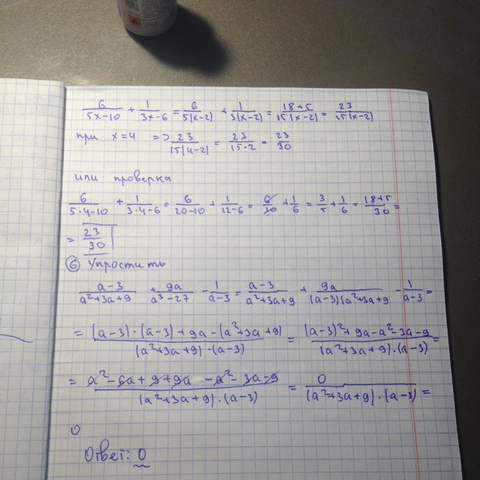 6/(5x-10) + 1/(3x-6) = 6/(5(x-2)) + 1/(3(x-2)) = (18+5)/(15(x-2)) = 23/(15(x-2))
при x=4 => 23/(15(4-2)) = 23/(15·2) = 23/30
или проверка
6/(5·4-10) + 1/(3·4-6) = 6/(20-10) + 1/(12-6) = 6/10 + 1/6 = 3/5 + 1/6 = (18+5)/30 =
= 23/30
⑥ Упростить
(a-3)/(a²+3a+9) + 9a/(a³-27) - 1/(a-3) = (a-3)/(a²+3a+9) + 9a/((a-3)(a²+3a+9) - 1/(a-3) =
= ((a-3)·(a-3)+9a-(a²+3a+9))/((a²+3a+9)·(a-3)) = ((a-3)²+9a-a²-3a-9)/((a²+3a+9)·(a-3)) =
= (a²-6a+9+9a-a²-3a-9)/((a²+3a+9)·(a-3)) = 0/((a²+3a+9)·(a-3)) =
0
Ответ: 0